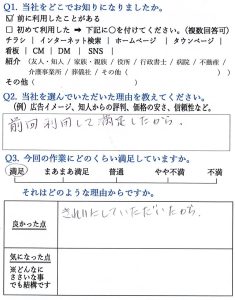 Q1. 当社をどこでお知りになりましたか。
☑ 前に利用したことがある
□ 初めて利用した ➡ 下記に○を付けてください。(複数回答可)
チラシ | インターネット検索 | ホームページ | タウンページ |
看板 | CM | DM | SNS |
紹介 (友人・知人 / 家家・親族 / 役所 / 行政書士 / 病院 / 不動産 /
介護事業所 / 葬儀社 / その他 )
その他 ( )
Q2. 当社を選んでいただいた理由を教えてください。
(例) 広告イメージ、知人からの評判、価格の安さ、信頼性など。
前回利用して満足したから。
Q3. 今回の作業にどのくらい満足していますか。
満足 まあまあ満足 普通 やや不満 不満
それはどのような理由からですか。
良かった点
きれいにしていただいたから。
気になった点
※どんなに
ささいな事
でも結構です